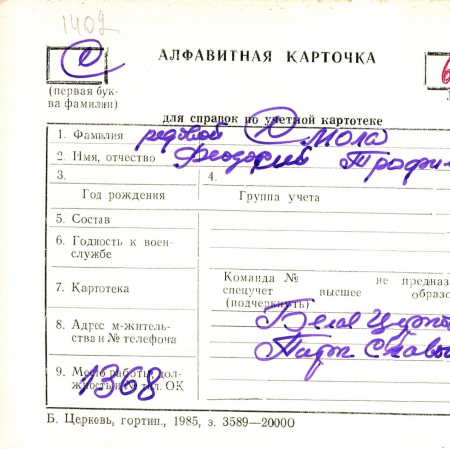 1402
С
АЛФАВИТНАЯ КАРТОЧКА
6
(первая бук-
ва фамилии)
для справок по учетной картотеке
1. Фамилия рядовой С Мола
2. Имя, отчество Феодосий Трофи
3.
4.
Год рождения
Группа учета
5. Состав
6. Годность к воен-
службе
7. Картотека
Команда № не предназ
спецучет высшее образо
(подчеркнуть)
8. Адрес м-житель-
ства и № телефона
Белая Церковь
Парк Славы
9. Место работы, дол-
жность и № тел. ОК
1368
Б. Церковь, гортип., 1985, з. 3589—20000